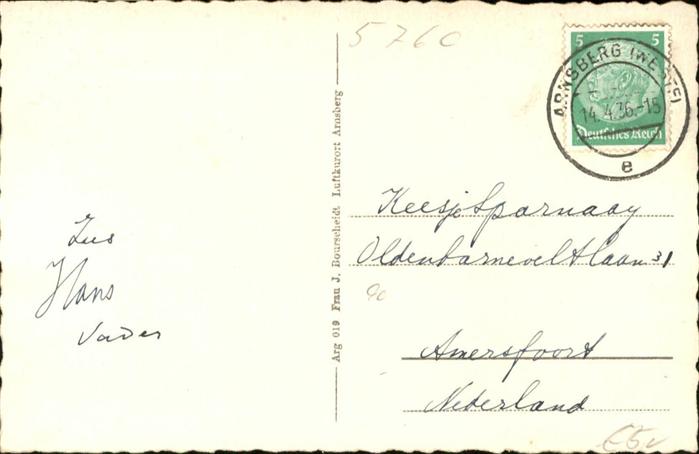 5760
5 5
ARNSBERG (WESTF)
14.4.36.-15
Deutsches Reich
e
Arg 019 Frau J. Bourscheidt Luftkurort Arnsberg
Zus
Hans
Vader
Keesje Sparnaay
Oldenbarneveltlaan 31
Amersfoort
Nederland